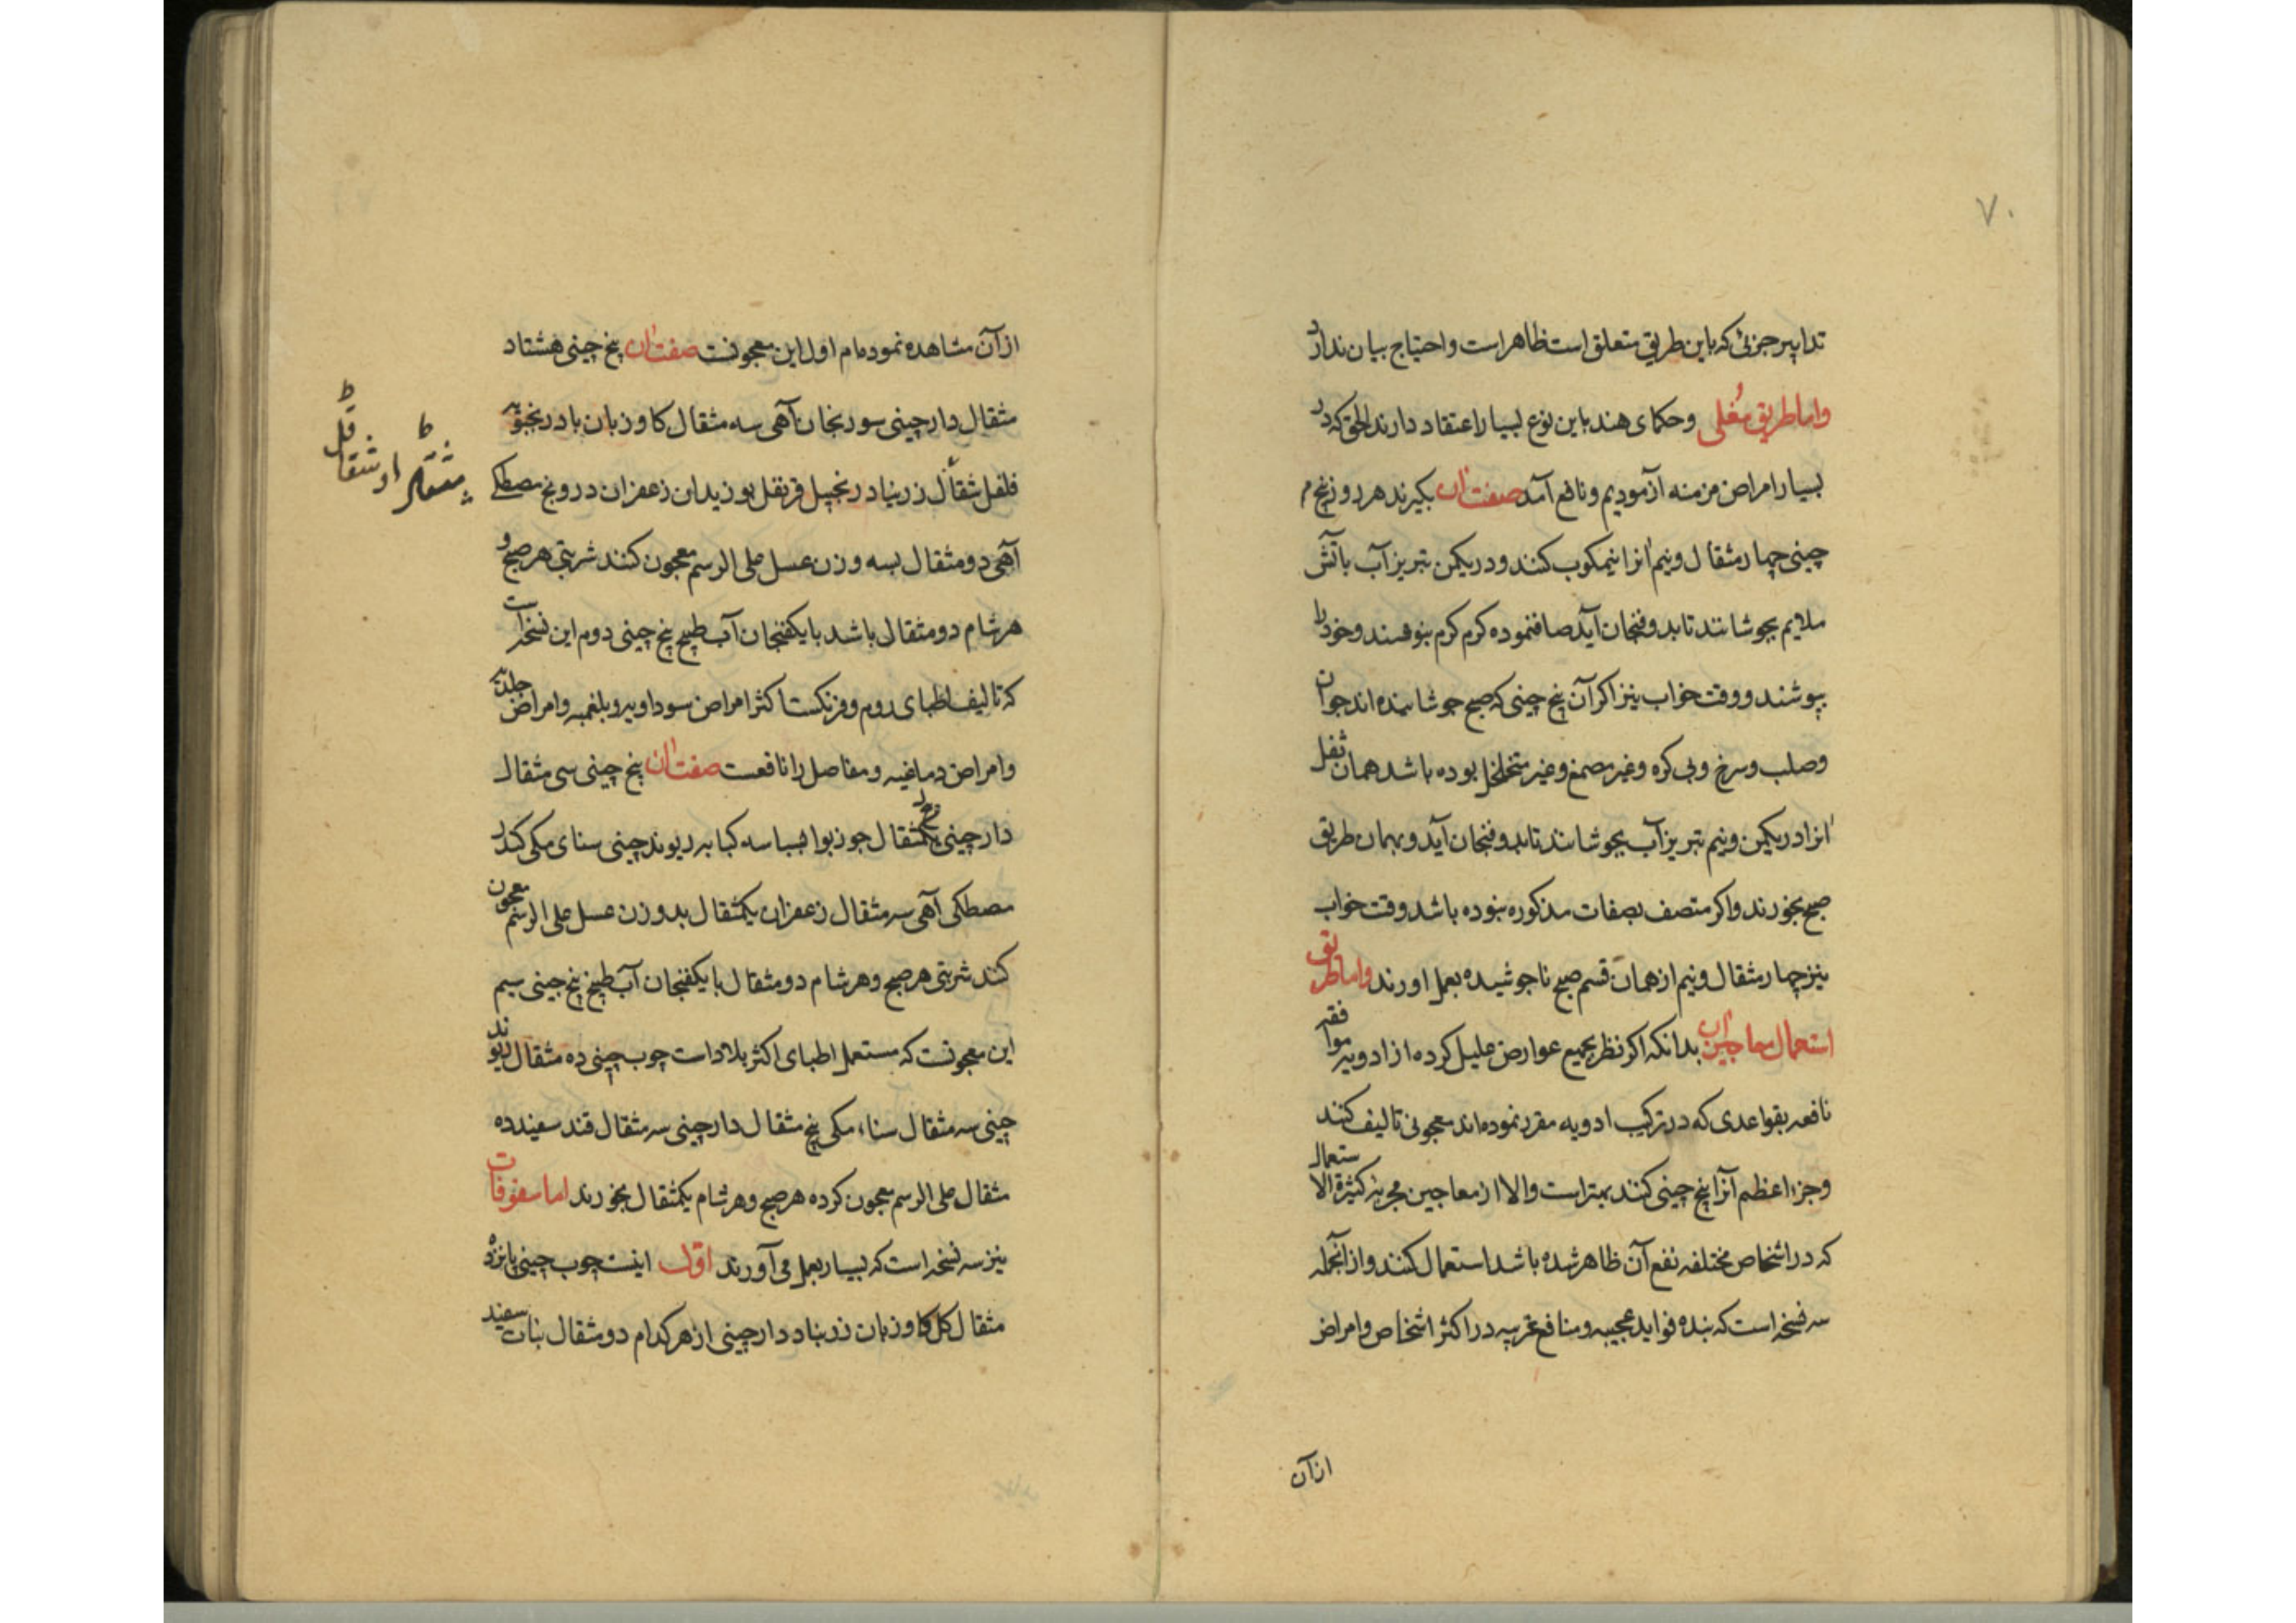 ۷۰
تدابیر جزئی که باین طریق متعلق است ظاهر است و احتیاج ببیان ندارد
واما طریق مغلی وحکمای هند باین نوع بسیار اعتقاد دارند الحق که در
بسیار امراض مزمنه آزمودیم و نافع آمد صفت آن بگیرند هر روز بیخ
چینی چهار مثقال ونیم انرا نیمکوب کنند ودر یکمن تبریز آب بآتش
ملایم بجوشانند تا بدو فنجان آید صاف نموده کرم کرم بنوشند وخود را
بپوشند و وقت خواب نیز اکر آن بیخ چینی که صبح جوشانیده اند جوان
وصلب وسرخ وبی کره وغیر مصمغ وغیر متخلخل بوده باشد همان ثفل
انرا در یکمن ونیم تبریز آب بجوشانند تا بدو فنجان آید وبهمان طریق
صبح بخورند واکر متصف بصفات مذکوره نبوده باشد وقت خواب
نیز چهار مثقال ونیم از همان قسم صبح ناجوشیده بعمل اورند واما طریق
استعمال معاجین آن بدانکه اکر نظر بجمیع عوارض علیل کرده از ادویه موافقه
نافعه بقواعدی که در ترکیب ادویه مقرر نموده اند معجونی تالیف کنند
وجزء اعظم آنرا بیخ چینی کنند بهتر است والا از معاجین مجربه کثیرة الاستعمال
که در اشخاص مختلفه نفع آن ظاهر شده باشد استعمال کنند واز آنجمله
سه نسخه است که بنده فواید عجیبه ومنافع غریبه در اکثر اشخاص وامراض
از آن
از آن مشاهده نموده ام اول این معجونست صفت آن بیخ چینی هشتاد
مثقال دارچینی سورنجان آهی سه مثقال کاوزبان بادرنجبویه
فلفل مثقال زرنباد زنجبیل قرنفل بوزیدان زعفران درونج مصطکی
آهی دو مثقال بسه وزن عسل علی الرسم معجون کنند شربتی هر صبح و
هر شام دو مثقال باشد با یکفنجان آب طبیخ بیخ چینی دوم این نسخه است
که تالیف اطبای روم وفرنکست اکثر امراض سوداویه وبلغمیه وامراض جلدیه
وامراض دماغیه ومفاصل را نافعست صفت آن بیخ چینی سی مثقال
دارچینی مثقال جوزبوا بسباسه کبابه ریوند چینی سنای مکی کندر
مصطکی آهی سه مثقال زعفران یکمثقال بدو وزن عسل علی الرسم معجون
کنند شربتی هر صبح وهر شام دو مثقال با یکفنجان آب طبیخ بیخ چینی سیم
این معجونست که مستعمل اطبای اکثر بلاد است چوب چینی ده مثقال ریوند
چینی سه مثقال سناء مکی پنج مثقال دارچینی سه مثقال قند سفید ده
مثقال علی الرسم معجون کرده هر صبح وهر شام یکمثقال بخورند اما سفوفات
نیز سه نسخه است که بسیار بعمل می آورند اول اینست چوب چینی پانزده
مثقال کل کاوزبان زرنباد دارچینی از هر کدام دو مثقال نبات سفید